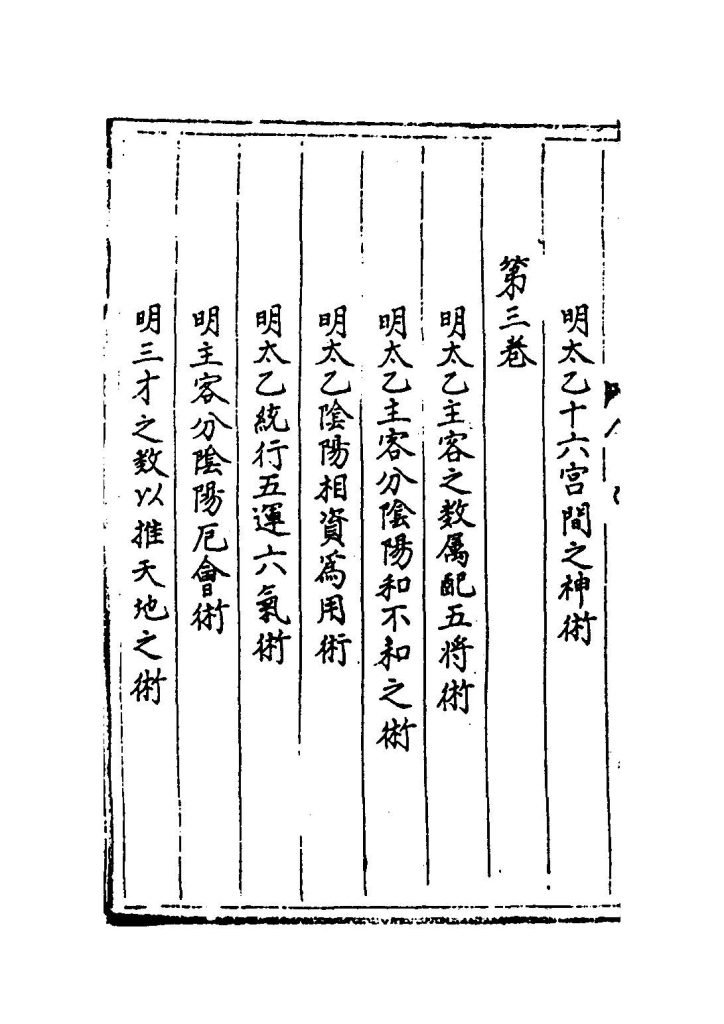 明太乙十六宫間之神術
第三卷
明太乙主客之数属配五将術
明太乙主客分陰陽和不和之術
明太乙陰陽相資爲用術
明太乙統行五運六氣術
明主客分陰陽厄會術
明三才之数以推天地之術